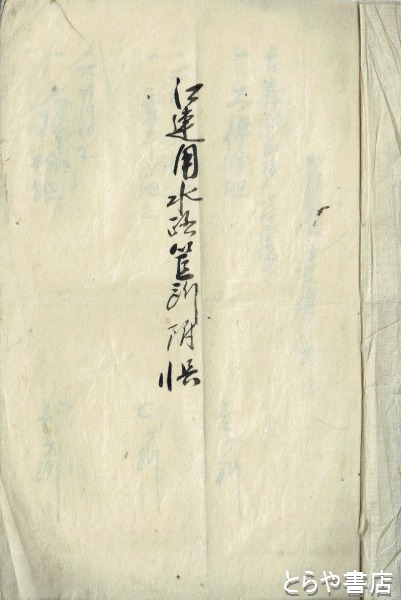 江連用水路箇所附帳
とらや書店